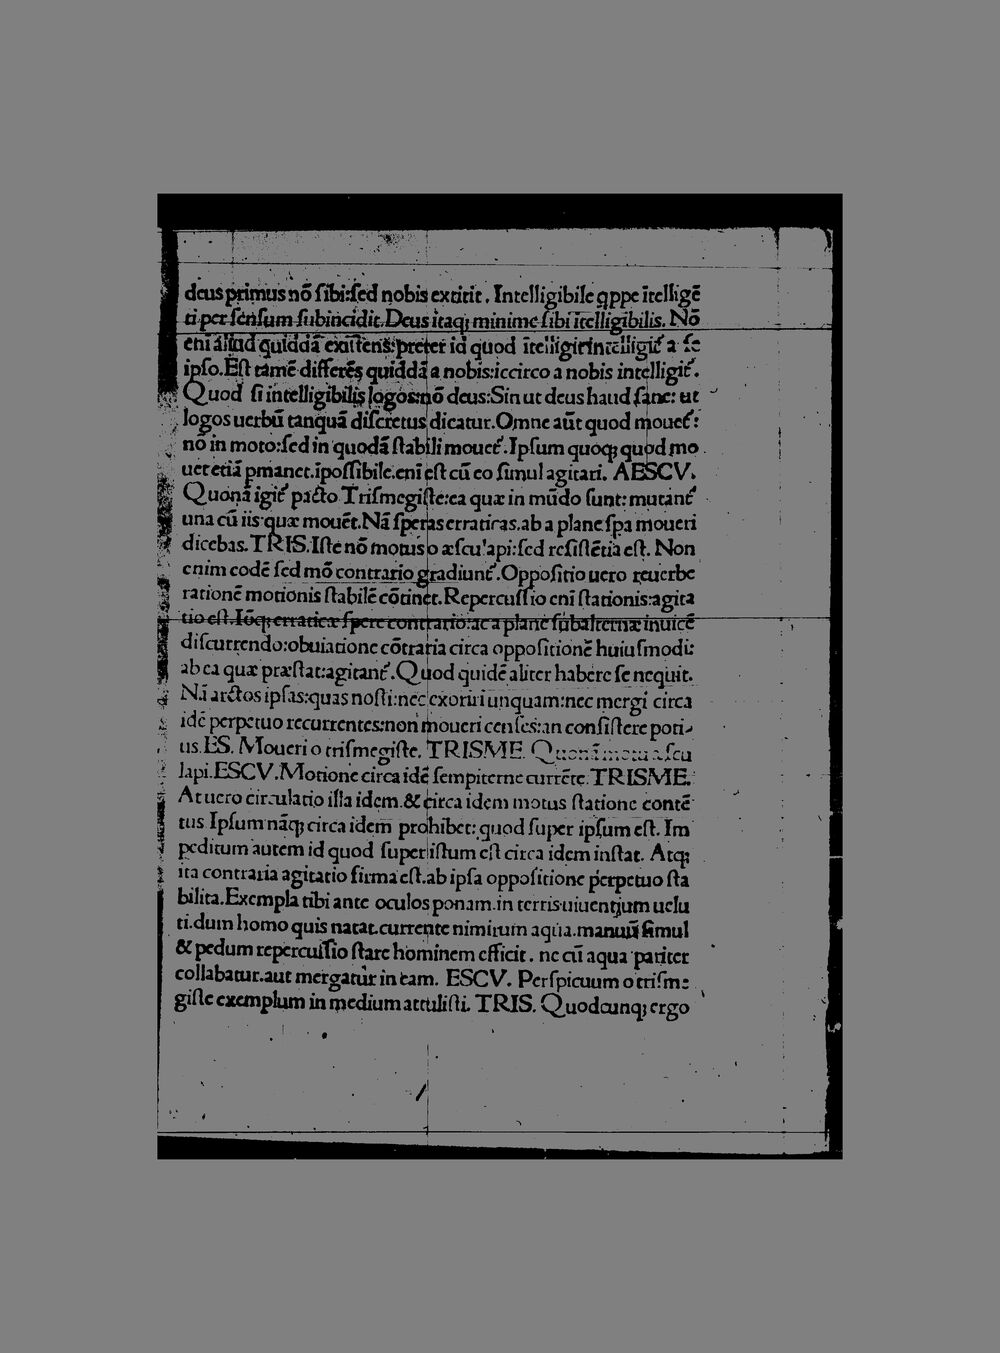 deus primus nõ ſibi:ſed nobis extitit. Intelligibile qppe ĩtelligẽ
ti per ſenſum ſubincidit.Deus itaqꝫ minime ſibi ĩtelligibilis. Nõ
enĩ aliud quiddã exiſtens:preter id quod ĩtelligit̃ intelligit̃ a ſe
ipſo.Eſt tamẽ differẽs quiddã a nobis:iccirco a nobis intelligit̃.
Quod ſi intelligibilis logos:nõ deus:Sin ut deus haud ſane: ut
logos uerbũ tanquã diſcretus dicatur.Omne aũt quod mouet̃:
nõ in moto:ſed in quodã ſtabili mouet̃.Ipſum quoqꝫ quod mo
uet etiã ꝑmanet.ĩpoſſibile.enĩ eſt cũ eo ſimul agitari. AESCV.
Quonã igit̃ pacto Triſmegiſte:ea quæ in mũdo ſunt: mutant̃
una cũ iis quæ mouẽt.Nã ſperas erraticas.ab a plane ſpa moueri
dicebas.TRIS.Iſte nõ motus o æſculapi:ſed reſiſtẽtia eſt. Non
enim eodẽ ſed mõ contrario gradiunt̃.Oppoſitio uero reuerbe
rationẽ motionis ſtabilẽ cõtinet.Repercuſſio enĩ ſtationis:agita
tio eſt.Iõqꝫ erraticæ ſpere contrario:ac a plane ſubalternæ inuicẽ
diſcurrendo:obuiatione cõtraria circa oppoſitionẽ huiuſmodi:
ab ea quæ præſtat:agitant̃.Quod quidẽ aliter habere ſe nequit.
Nã arctos ipſas:quas noſti:nec exoriri unquam:nec mergi circa
idẽ perpetuo recurrentes:non moueri cenſes:an conſiſtere poti-
us.ES. Moueri o triſmegiſte. TRISME. Quonã motu æſcu
lapi.ESCV.Motione circa idẽ ſempiterne currẽte.TRISME.
At uero circulatio illa idem.& circa idem motus ſtatione contẽ
tus Ipſum nãqꝫ circa idem prohibet: quod ſuper ipſum eſt. Im
peditum autem id quod ſuper iſtum eſt circa idem inſtat. Atqꝫ
ita contraria agitatio firma eſt.ab ipſa oppoſitione perpetuo ſta
bilita.Exempla tibi ante oculos ponam.in terris uiuentium uelu
ti.dum homo quis natat.currente nimirum aqua.manuũ ſimul
& pedum repercuſſio ſtare hominem efficit. ne cũ aqua pariter
collabatur.aut mergatur in eam. ESCV. Perſpicuum o triſm:
giſte exemplum in medium attuliſti. TRIS. Quodcunqꝫ ergo